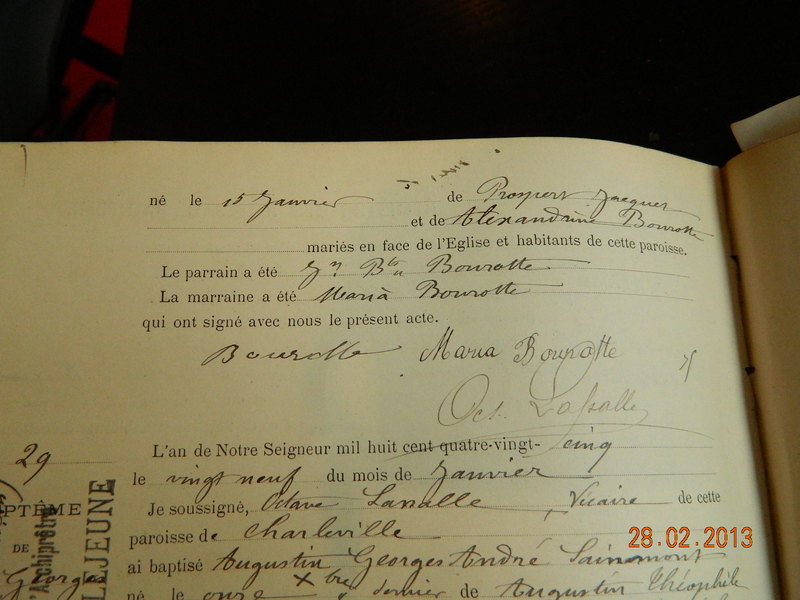 né le 15 Janvier de Prospert Jacquet
et de Alexandrine Bourotte
mariés en face de l'Eglise et habitants de cette paroisse.
Le parrain a été Jn Bte Bourotte
La marraine a été Maria Bourotte
qui ont signé avec nous le présent acte.
Bourotte Maria Bourotte
Oct. Lassalle
29
L'an de Notre Seigneur mil huit cent quatre-vingt-cinq
le vingt neuf du mois de Janvier
PTÊME
Je soussigné, Octave Lassalle, Vicaire de cette
DE
paroisse de Charleville
l'Archiprêtre
LEJEUNE
ai baptisé Augustin Georges André
Georges
né le onze dernier de Augustin Théophile
28.02.2013